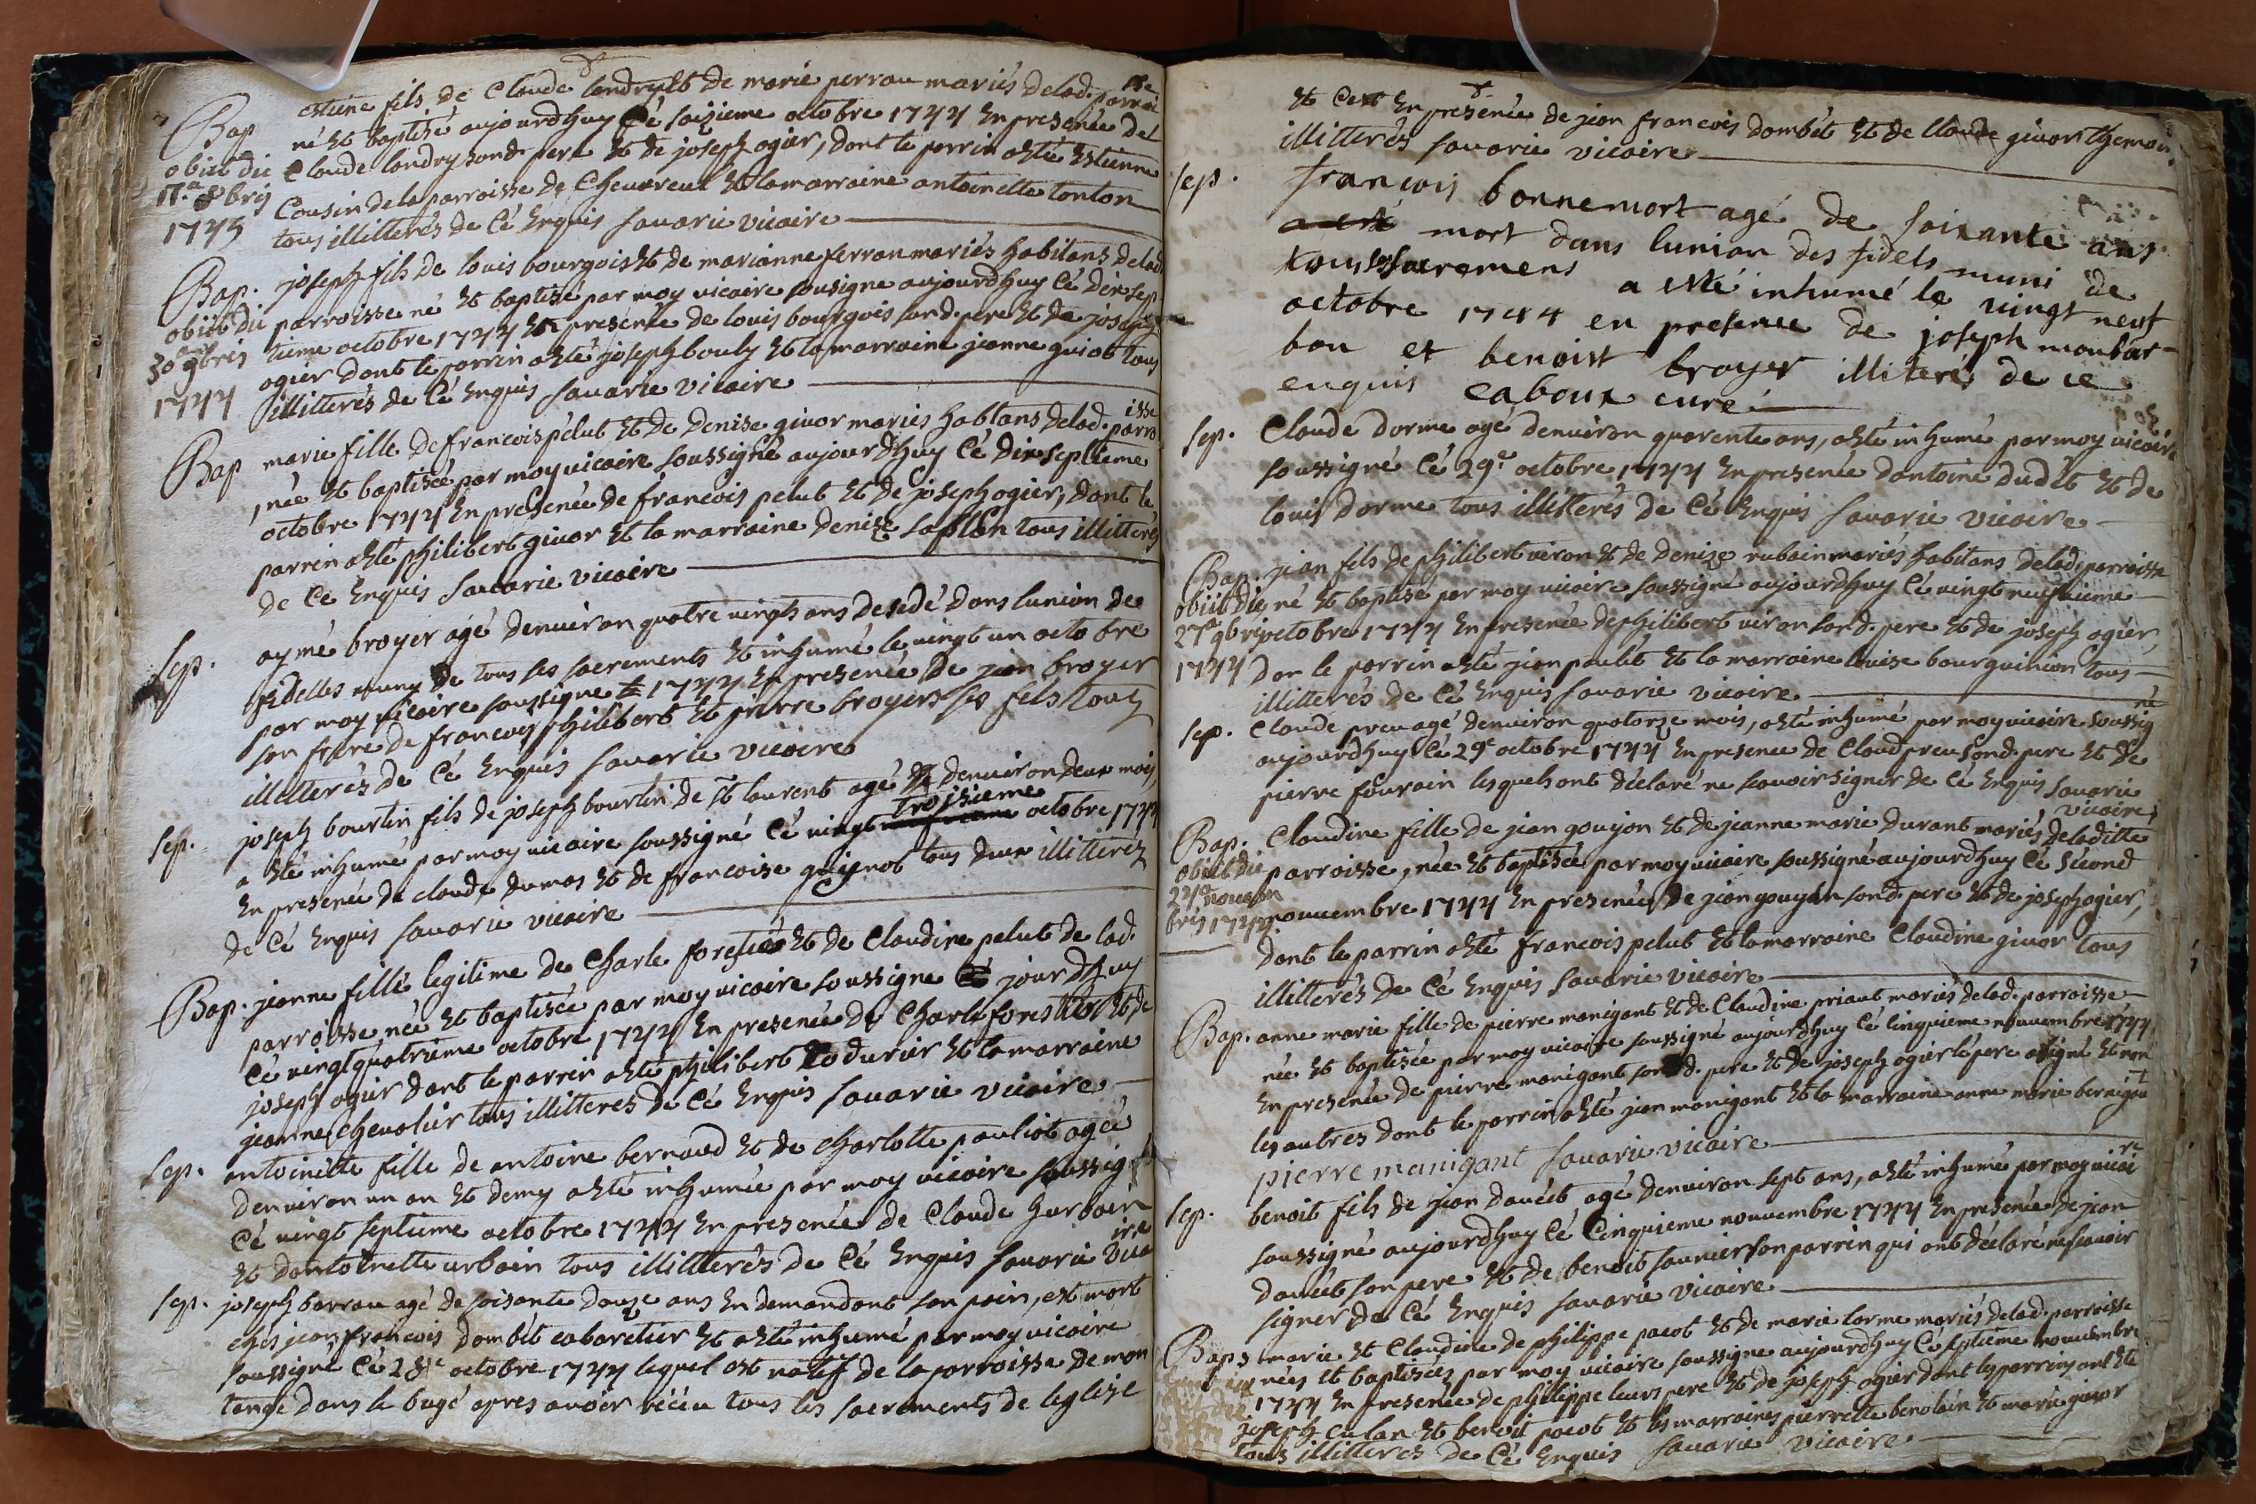 Bap estiene fils de Claude landry et de marie perrau mariés de lad. parroisse
né et baptisé aujourdhuy Cé saizieme octobre 1744 En presence de
obiit die Claude landry sond. pere et de joseph ogier, dont le parrin a Eté Estienne
11.a 8bris Cousin de la parroisse de Chevareux et la marraine antoinette tonton
1745 tous illitterés de Cé Enquis Savarie vicaire
Bap. joseph fils de louis bourgois et de marianne ferran mariés habitans de lad
obiit die parroisse né et baptisé par moy vicaire sousigné aujourdhuy Cé dix sep
30a 9bris tieme octobre 1744 En presence de louis bourgois sond. pere et de joseph
1744 ogier dont le parrin a Eté joseph bouly et la marraine jeanne guiot tous
illitterés de Cé Enquis Savarie vicaire
Bap marie fille de francois pelut et de Denise givor mariés habtans de lad. parroisse
, née et baptisée par moy vicaire soussigné aujourdhuy Cé dix septieme
octobre 1744 En presence de francois pelut et de joseph ogier, dont le
parrin a Eté philibert givor et la marraine denize laplan tous illitterés
de Cé Enquis Savarie vicaire
Sep. aymé broyer agé denviron quatre vingts ans decedé dans lunion des
fidelles muny de tous ses sacrements et inhumé le vingt un octobre
par moy vicaire soussigne 1744 En presence de jean broyer
son frere de francois philibert et pierre broyers ses fils tous
illitterés de Cé Enquis Savarie vicaire
Sep. joseph bourtin fils de joseph bourtin de st laurent agé denviron deux mois
a Eté inhumé par moy vicaire soussigné Cé vingt troisieme octobre 1744
En presence de claude dumas et de francoise guignot tous deux illitterez
de Cé Enquis Savarie vicaire
Bap. jeanne fille legitime de Charle forestier et de Claudine pelut de lad.
parroisse née et baptisée par moy vicaire soussigne jourdhuy
Cé vingt quatrieme octobre 1744 En presence de Charle forestier et de
joseph ogier dont le parrin a Eté philibert durier et la marraine
jeanne Chevalier tous illitteres de Cé Enquis Savarie vicaire
Sep. antoinette fille de antoine bernoud et de charlotte pauliot agée
denviron un an et demy a Eté inhumée par moy vicaire soussig
Cé vingt septieme octobre 1744 En presence de Claude hurbain
et dantoinette urbain tous illitterés de Cé Enquis Savarie vicaire
Sep. joseph barrau agé de soisante douze ans En demandant son pain, est mort
chés jean francois dombét cabaretier et a Eté inhumé par moy vicaire
soussigné Cé 28e octobre 1744 lequel est natif de la parroisse de mon
tange dans le bugé apres avoir récéu tous les sacrements de leglise
et Cest En presence de jean francois dombét et de Claude givor thémoin
illitterés Savarie vicaire
Sep. francois bonnemort agé de soixante ans
mort dans lunion des fidels muni de
tous ses sacremens a esté inhumé le vingt neuf
octobre 1744 en presence de joseph monbar-
bon et benoist broyer illiterés de ce
enquis Caboux curé
Sep. Claude dorme agé denviron quarente ans, a Eté inhumé par moy vicaire
soussigné Cé 29e octobre 1744 En presence dantoine dudit et de
louis dorme tous illitterés de Cé Enquis Savarie vicaire
Bap. jean fils de philibert viron et de Denize rubain mariés habitans de lad. parroisse
obiit die né et baptisé par moy vicaire soussigné aujourdhuy Cé vingt neufvieme
27a 9bris octobre 1744 En presence de philibert viron sond. pere et de joseph ogier,
1744 Don le parrin a Eté jean paulet et la marraine louise bourguinion tous
illitterés de Cé Enquis Savarie vicaire
Sep. Claude preu agé denviron quatorze mois, a Eté inhumé par moy vicaire soussigné
aujourdhuy Cé 29e octobre 1744 En presence de Claud preu sond. pere et de
pierre fourain lesquels ont déclaré ne scavoir signer de Cé Enquis Savarie
vicaire
Bap. Claudine fille de jean goujon et de jeanne marie durant mariés de laditte
obiit die parroisse, née et baptisée par moy vicaire soussigné aujourdhuy Cé second
24a novem nouvembre 1744 En presence de jean goujon sond. pere et de joseph ogier,
bris 1744 dont le parrin a Eté francois pelut et la marraine Claudine givor tous
illitterés de Cé Enquis Savarie vicaire
Bap. anne marie fille de pierre manigant et de Claudine priaut mariés de lad. parroisse
née et baptisée par moy vicaire soussigné aujourdhuy Cé Cinquieme nouvembre 1744
En presence de pierre manigant sond. pere et de joseph ogier lé pere a signé et non
les autres dont le parrin a Eté jean manigant et la marraine anne marie bernigou
pierre manigant Savarie vicaire
Sep. benoit fils de jean dauét agé denviron sept ans, a Eté inhumé par moy vicaire
soussigné aujourdhuy Cé Cinquieme nouvembre 1744 En presence de jean
dauét son pere et de benoit saunier son parrin qui ont déclaré ne scavoir
signer de Cé Enquis Savarie vicaire
Baps marie et Claudine de philippe pacot et de marie lorme mariés de lad. parroisse
nées et baptisées par moy vicaire soussigne aujourdhuy Cé septieme nouvembre
1744 En presence de philippe leurs pere et de joseph ogier dont les parrins ont Eté
joseph culan et benoit pacot et les marraines pierrette benolain et marie givor
tous illitteres de Cé Enquis Savarie vicaire